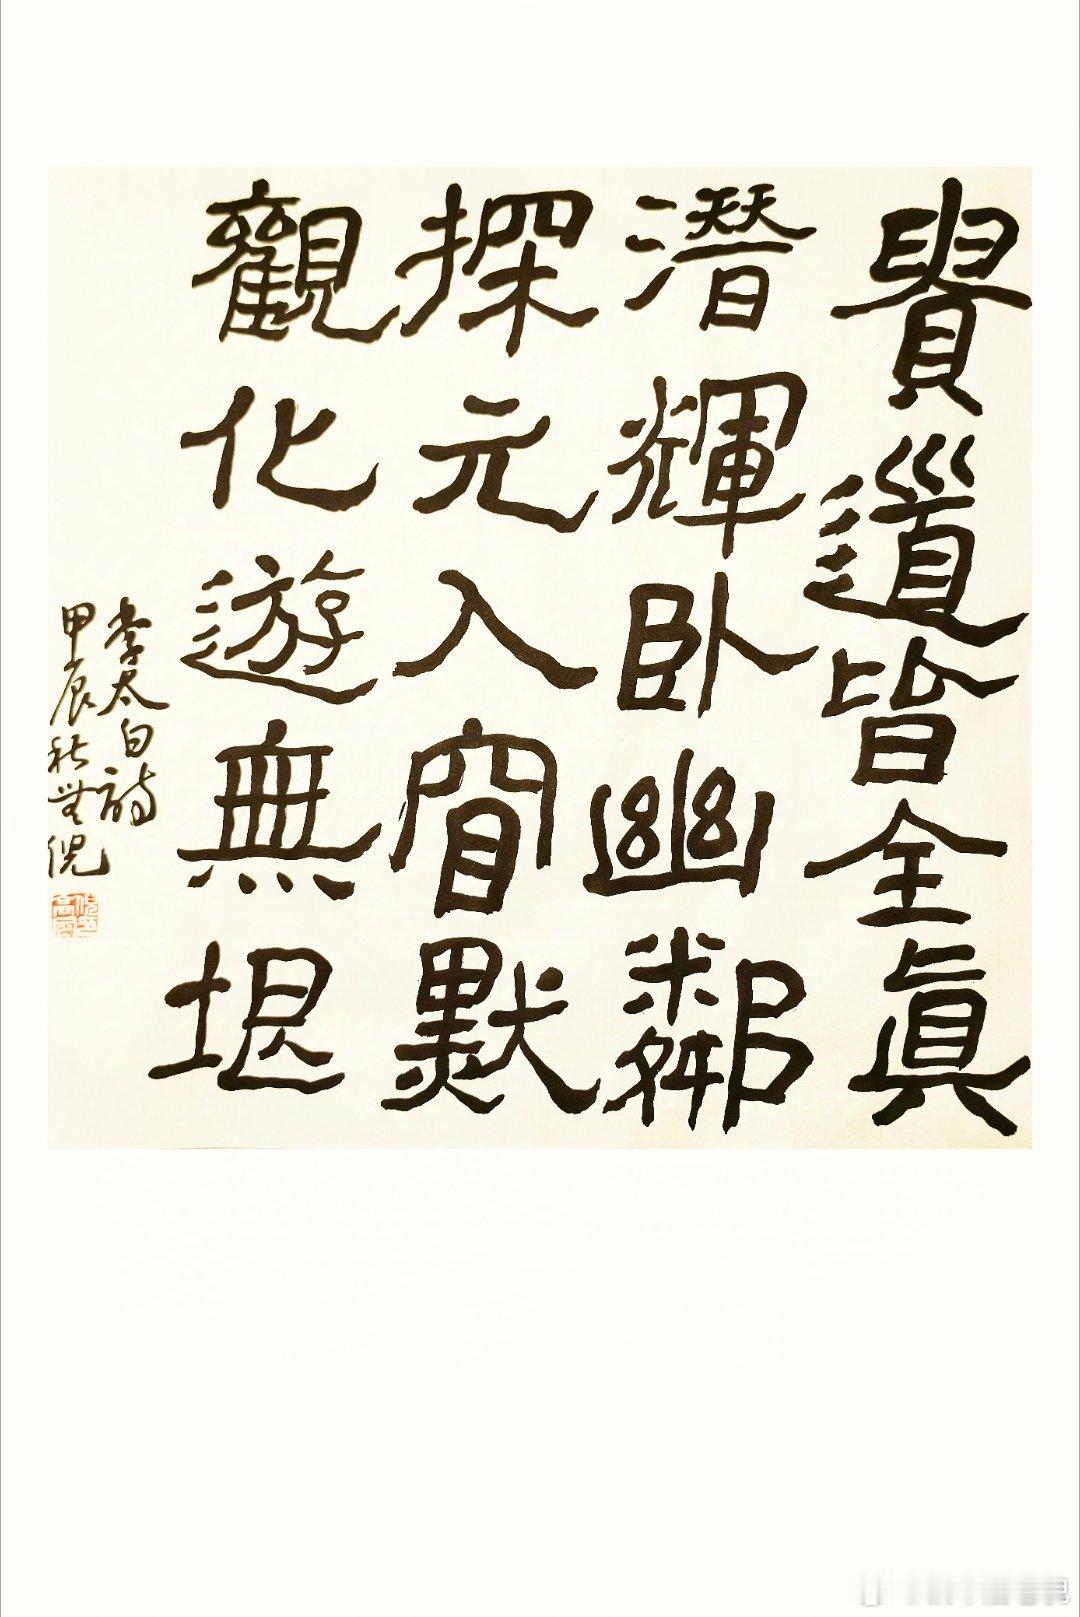 貴道皆全真
潛輝卧幽鄰
探元入窅默
觀化遊無垠
李太白詩
甲辰秋無倪